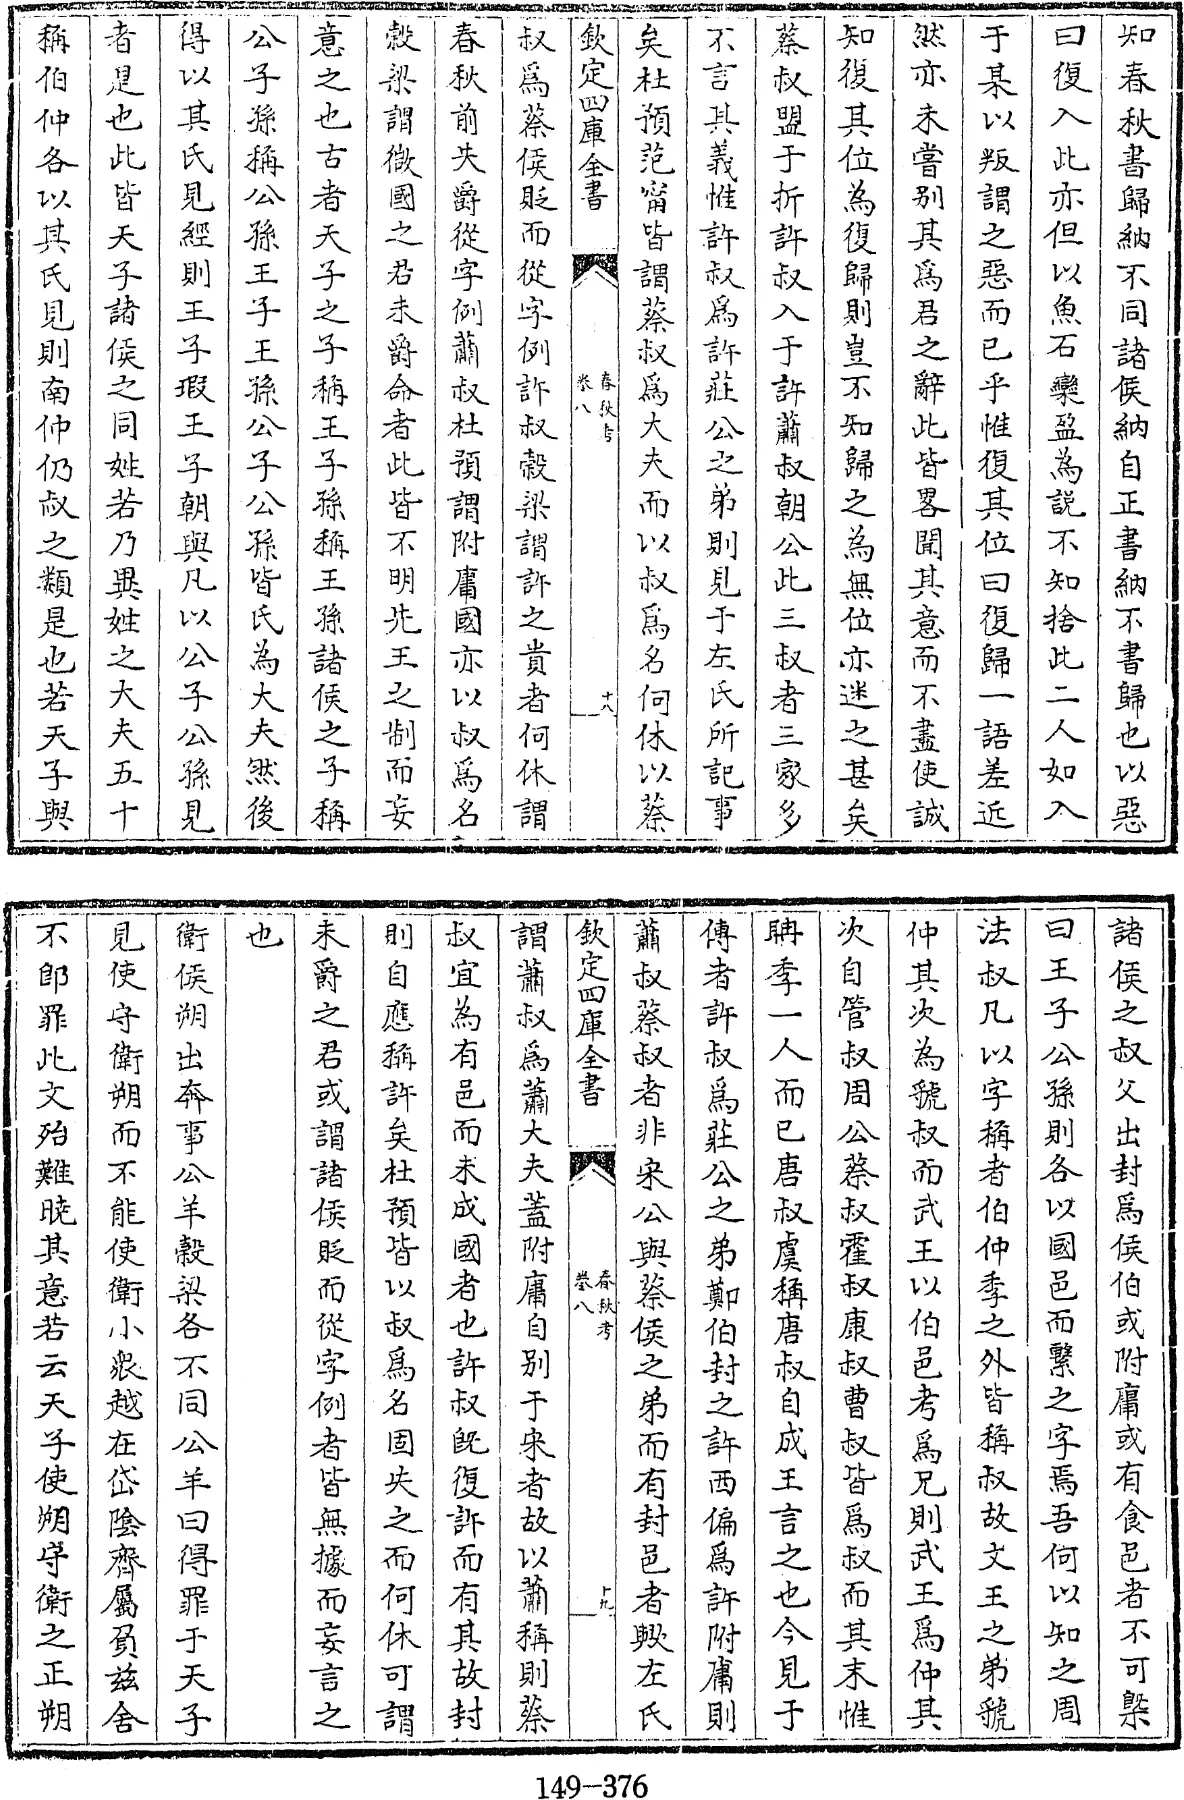 知春秋書歸納不同諸侯納自正書納不書歸也以惡
曰復入此亦但以魚石欒盈為説不知捨此二人如入
于某以叛謂之惡而已乎惟復其位曰復歸一語差近
然亦未嘗别其爲君之辭此皆畧開其意而不盡使誠
知復其位為復歸則豈不知歸之為無位亦迷之甚矣
蔡叔盟于折許叔入于許蕭叔朝公此三叔者三家多
不言其義惟許叔爲許莊公之弟則見于左氏所記事
矣杜預范甯皆謂蔡叔爲大夫而以叔爲名何休以蔡
欽定四庫全書
春秋考
卷八
十八
叔爲蔡侯貶而從字例許叔穀梁謂許之貴者何休謂
春秋前失爵從字例蕭叔杜預謂附庸國亦以叔爲名
穀梁謂微國之君未爵命者此皆不明先王之制而妄
意之也古者天子之子稱王子孫稱王孫諸侯之子稱
公子孫稱公孫王子王孫公子公孫皆氏為大夫然後
得以其氏見經則王子瑕王子朝與凡以公子公孫見
者是也此皆天子諸侯之同姓若乃異姓之大夫五十
稱伯仲各以其氏見則南仲仍叔之類是也若天子與
諸侯之叔父出封爲侯伯或附庸或有食邑者不可槩
曰王子公孫則各以國邑而繫之字焉吾何以知之周
法叔凡以字稱者伯仲季之外皆稱叔故文王之弟虢
仲其次為虢叔而武王以伯邑考爲兄則武王爲仲其
次自管叔周公蔡叔霍叔康叔曹叔皆爲叔而其末惟
聃季一人而已唐叔虞稱唐叔自成王言之也今見于
傳者許叔爲莊公之弟鄭伯封之許西偏爲許附庸則
蕭叔蔡叔者非宋公與蔡侯之弟而有封邑者歟左氏
欽定四庫全書
春秋考
卷八
十九
謂蕭叔爲蕭大夫蓋附庸自别于宋者故以蕭稱則蔡
叔宜為有邑而未成國者也許叔旣復許而有其故封
則自應稱許矣杜預皆以叔爲名固失之而何休可謂
未爵之君或謂諸侯貶而從字例者皆無據而妄言之
也
衛侯朔出奔事公羊穀梁各不同公羊曰得罪于天子
見使守衛朔而不能使衛小衆越在岱隂齊屬負兹舍
不即罪此文殆難曉其意若云天子使朔守衛之正朔
149-376